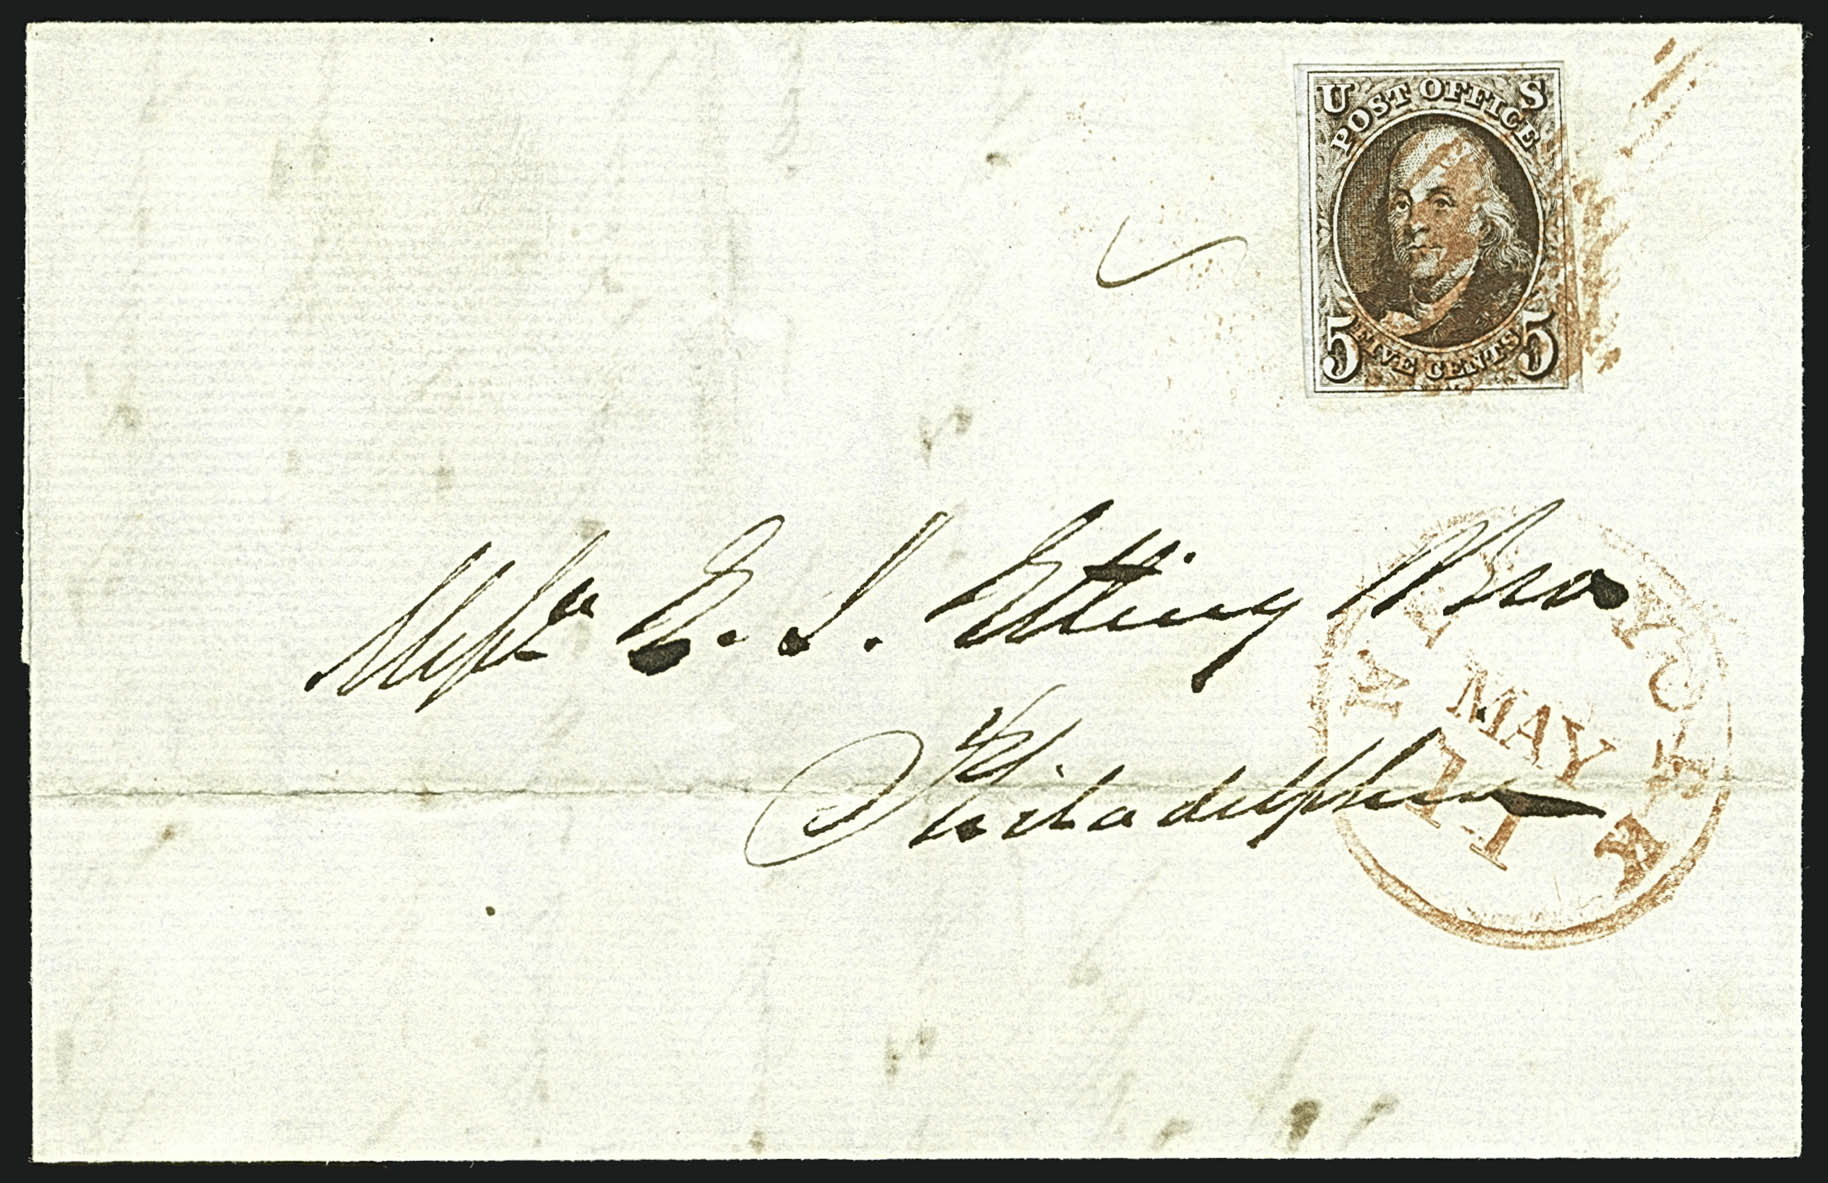 U S
POST OFFICE
5 FIVE CENTS 5
Messrs E. J. Etting & Bro
Philadelphia
NEW YORK
MAY
11